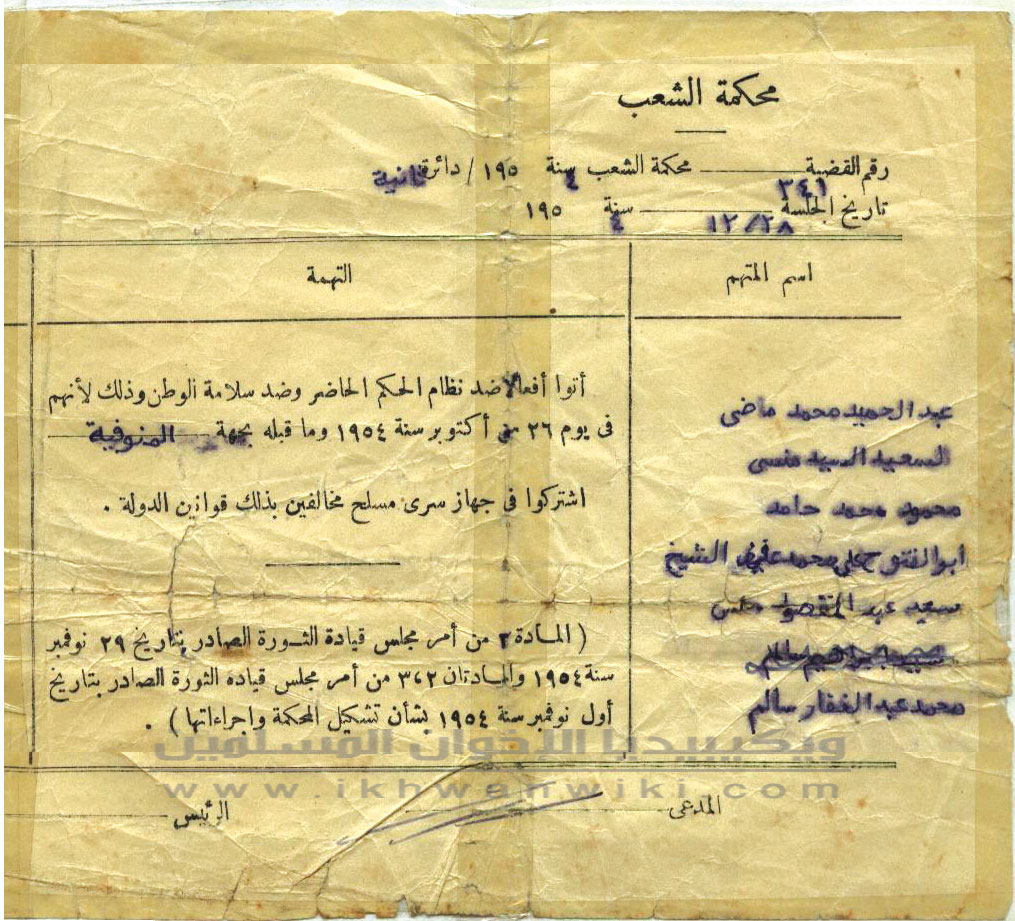 محكمة الشعب
رقم القضية ٣٤١ محكمة الشعب سنة ١٩٥٤ / دائرة ثانية
تاريخ الجلسة ١٢/٢٨ سنة ١٩٥٤
اسم المتهم
التهمة
عبد الحميد محمد ماضى
السعيد السيد منسى
محمود محمد حامد
ابو الفتوح على محمد الشيخ
سعيد عبد المقصود
ابراهيم سالم
محمد عبد الغفار سالم
أتوا أفعالا ضد نظام الحكم الحاضر وضد سلامة الوطن وذلك لأنهم
فى يوم ٢٦ من أكتوبر سنة ١٩٥٤ وما قبله بجهة المنوفية
اشتركوا فى جهاز سرى مسلح مخالفين بذلك قوانين الدولة .
( المادة ٢ من أمر مجلس قيادة الثورة الصادر بتاريخ ٢٩ نوفمبر
سنة ١٩٥٤ والمادتان ٣،٢ من أمر مجلس قيادة الثورة الصادر بتاريخ
أول نوفمبر سنة ١٩٥٤ بشأن تشكيل المحكمة واجراءاتها ) .
ويكيبيديا الإخوان المسلمين
www.ikhwanwiki.com
المدعى
الرئيس